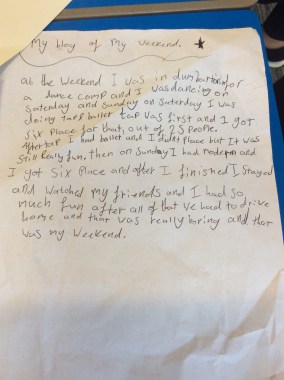 My blog of my weekend.
at the weekend I was in dumbarton for
a dance comp and I was dancing on
Saterday and Sunday on Saterday I was
doing tap & ballet tap was first and I got
Six place for that, out of 25 people.
After tap I had ballet and I didnt place but it was
Still really fun, then on Sunday I had modern and
I got Six Place and after I finished I stayed
and watched my friends and I had so
much fun after all of that we had to drive
home and that was really boring and that
was my weekend.